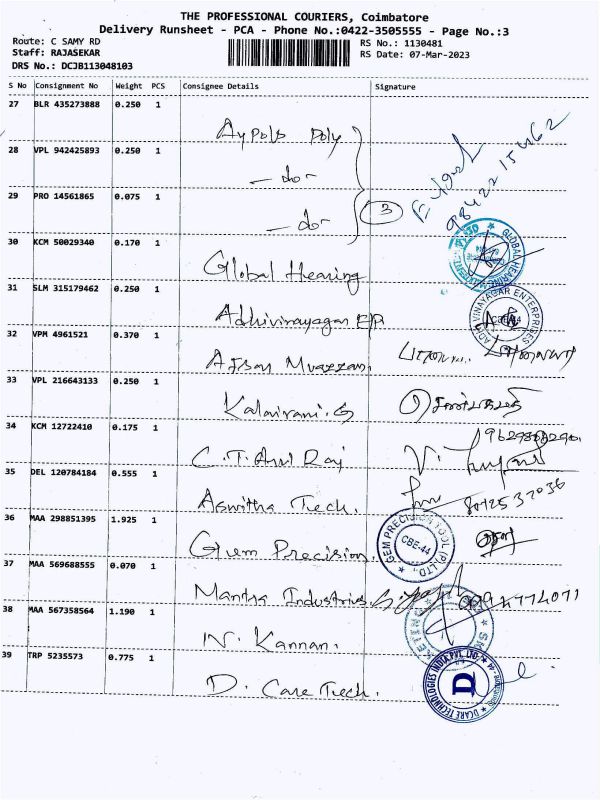 THE PROFESSIONAL COURIERS, Coimbatore
Delivery Runsheet - PCA - Phone No.:0422-3505555 - Page No.:3
Route: C SAMY RD
RS No.: 1130481
Staff: RAJASEKAR
RS Date: 07-Mar-2023
DRS No.: DCJB113048103
S No Consignment No Weight PCS Consignee Details Signature
27 BLR 435273888 0.250 1
28 VPL 942425893 0.250 1
- do -
29 PRO 14561865 0.075 1
- do -
3
30 KCM 50029340 0.170 1
Global Hearing
31 SLM 315179462 0.250 1
Adhivinayagar E/P
ADHI VINAYAGAR ENTERPRISES
CBE-44
32 VPM 4961521 0.370 1
33 VPL 216643133 0.250 1
Kalairani. G
34 KCM 12722410 0.175 1
C. T. Arul Raj
35 DEL 120784184 0.555 1
Aswitha Tech.
8012532036
36 MAA 298851395 1.925 1
Gem Precision.
GEM PRECISION TOOL (P) LTD.
CBE-44
37 MAA 569688555 0.070 1
Mantra Industries
38 MAA 567358564 1.190 1
N. Kannan.
39 TRP 5235573 0.775 1
D. Care Tech.
DCARE TECHNOLOGIES INDIA PVT. LTD.
D